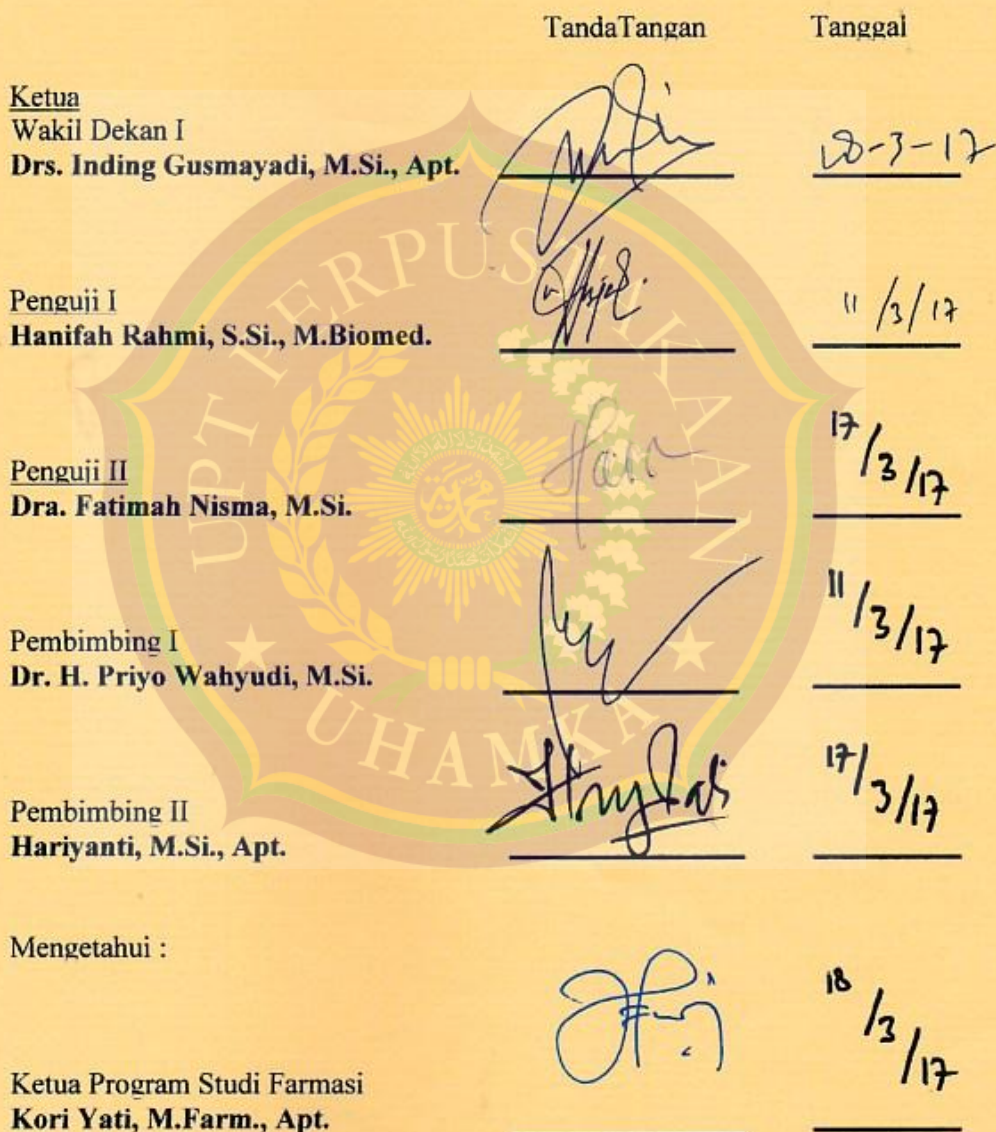 TandaTangan Tanggal
Ketua
Wakil Dekan I
Drs. Inding Gusmayadi, M.Si., Apt.
Penguji I
Hanifah Rahmi, S.Si., M.Biomed. 11/3/17
Penguji II 17/3/17
Dra. Fatimah Nisma, M.Si.
Pembimbing I 11/3/17
Dr. H. Priyo Wahyudi, M.Si.
Pembimbing II 17/3/17
Hariyanti, M.Si., Apt.
Mengetahui :
18/3/17
Ketua Program Studi Farmasi
Kori Yati, M.Farm., Apt.
UPT PERPUSTAKAAN
UHAMKA